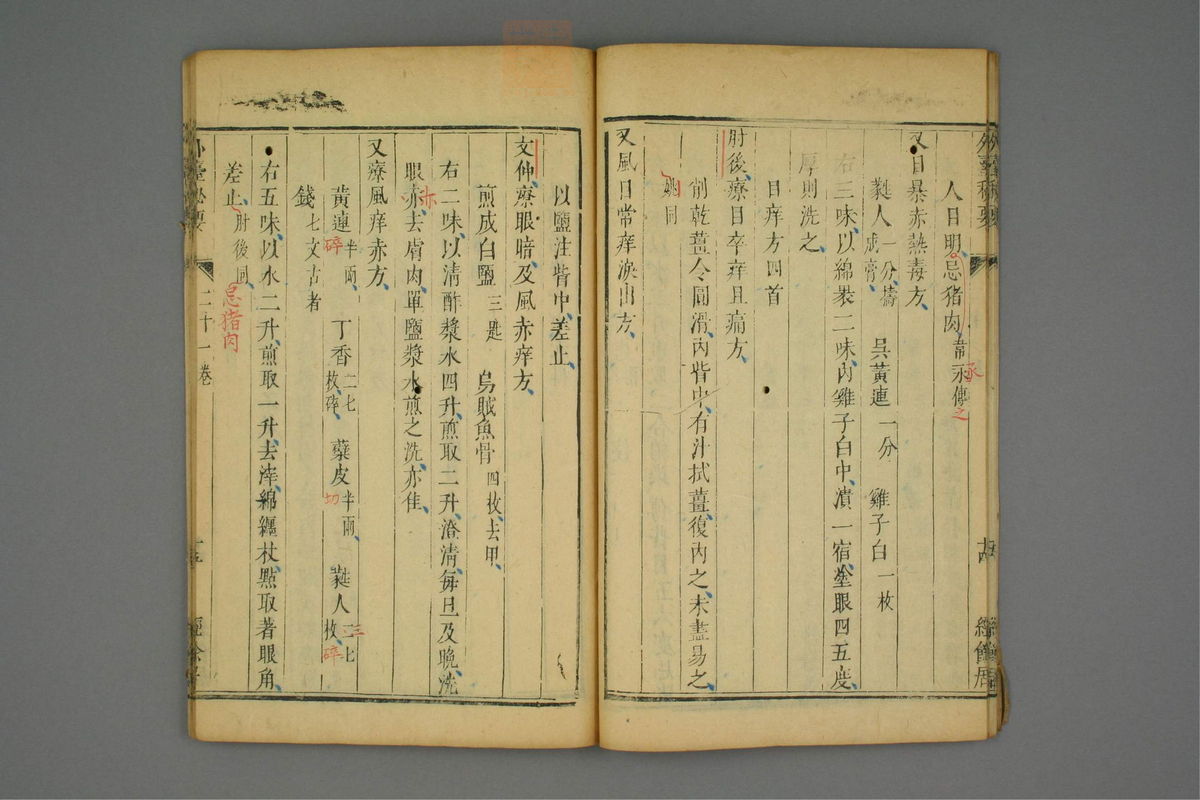 外臺秘要
人目明忌猪肉韋永傳之
又目暴赤熱毒方
蕤人一分擣成膏 吳黃連一分 雞子白一枚
右三味以綿裝二味內雞子白中漬一宿塗眼四五度
厚則洗之
目痒方四首
肘後療目卒痒且痛方
削乾薑令圓滑內眥中有汁拭薑復內之未盡易之
姚同
又風目常痒淚出方
以鹽注眥中差止
文仲療眼暗及風赤痒方
煎成白鹽三匙 烏賊魚骨四枚去甲
右二味以清酢漿水四升煎取二升澄清每旦及晚洗
眼亦去膚肉單鹽漿水煎之洗亦佳
赤
又療風痒赤方
黃連半兩碎 丁香二七枚碎 蘗皮半兩切 蕤人二七枚碎
三
錢七文古者
右五味以水二升煎取一升去滓綿纏杖點取著眼角
差止肘後同忌猪肉
二十一卷
經餘居